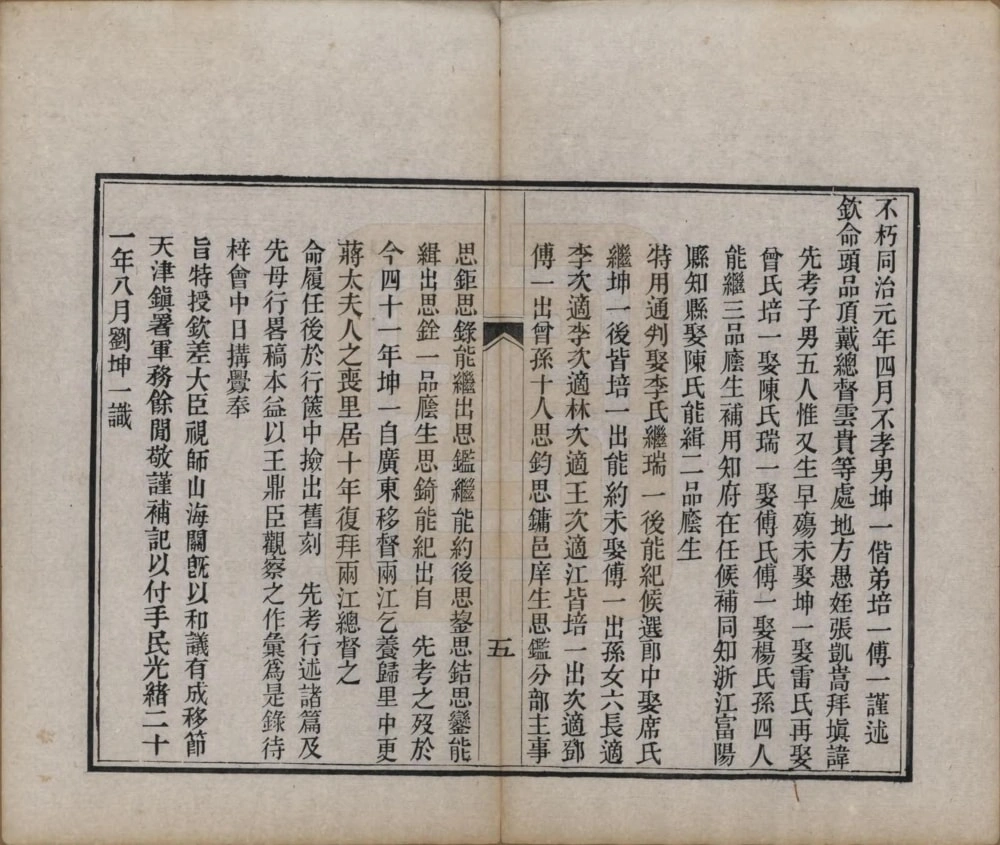 不朽同治元年四月不孝男坤一偕弟培一傅一謹述
欽命頭品頂戴總督雲貴等處地方愚姪張凱嵩拜塡諱
先考子男五人惟又生早殤未娶坤一娶雷氏再娶
曾氏培一娶陳氏瑞一娶傅氏傅一娶楊氏孫四人
能繼三品廕生補用知府在任候補同知浙江富陽
縣知縣娶陳氏能緝二品廕生
特用通判娶李氏繼瑞一後能紀候選郎中娶席氏
繼坤一後皆培一出能約未娶傅一出孫女六長適
李次適李次適林次適王次適江皆培一出次適鄧
傅一出曾孫十人思鈞思鏞邑庠生思鑑分部主事
五
思鉅思錄能繼出思鑑繼能約後思鋆思銡思鑾能
緝出思銓一品廕生思錡能紀出自　先考之歿於
今四十一年坤一自廣東移督兩江乞養歸里中更
蔣太夫人之喪里居十年復拜兩江總督之
命履任後於行篋中撿出舊刻　先考行述諸篇及
先母行畧稿本益以王鼎臣觀察之作彙爲是錄待
梓會中日搆釁奉
旨特授欽差大臣視師山海關旣以和議有成移節
天津鎭署軍務餘閒敬謹補記以付手民光緖二十
一年八月劉坤一識